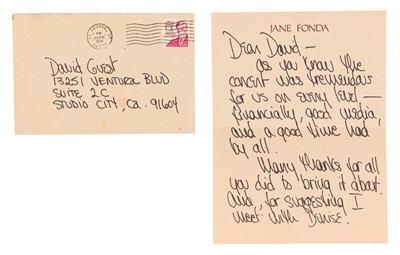 David Guest
13251 VENTURA BLVD
SUITE 2C
STUDIO CITY, CA. 91604
JANE FONDA
Dear David –
as you know the
concert was tremendous
for us on every level –
financially, good media,
and a good time had
by all.
Many thanks for all
you did to bring it about.
and, for suggesting I
meet with Denise.